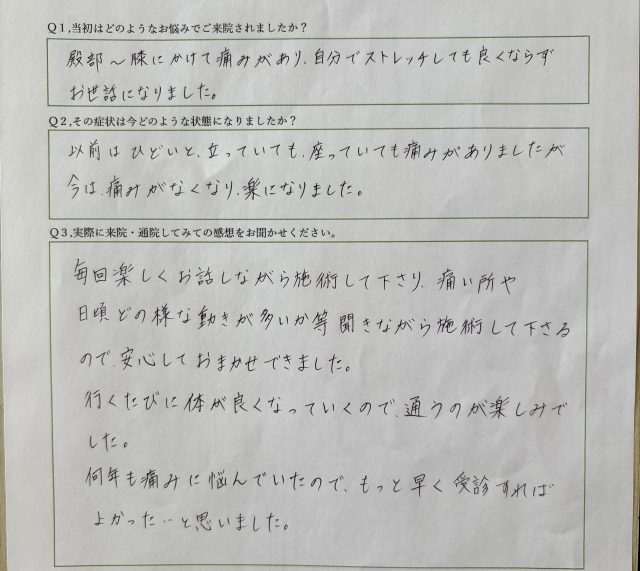 Q1,当初はどのようなお悩みでご来院されましたか？
殿部～膝にかけて痛みがあり、自分でストレッチしても良くならず
お世話になりました。
Q2,その症状は今どのような状態になりましたか？
以前はひどいと、立っていても、座っていても痛みがありましたが
今は、痛みがなくなり、楽になりました。
Q3,実際に来院・通院してみての感想をお聞かせください。
毎回楽しくお話しながら施術して下さり、痛い所や
日頃どの様な動きが多いか等聞きながら施術して下さる
ので、安心しておまかせできました。
行くたびに体が良くなっていくので、通うのが楽しみで
した。
何年も痛みに悩んでいたので、もっと早く受診すれば
よかった…と思いました。